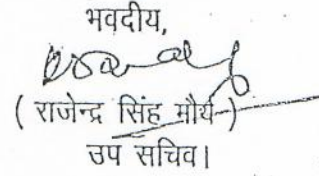 भवदीय,
( राजेन्द्र सिंह मौर्य )
उप सचिव।